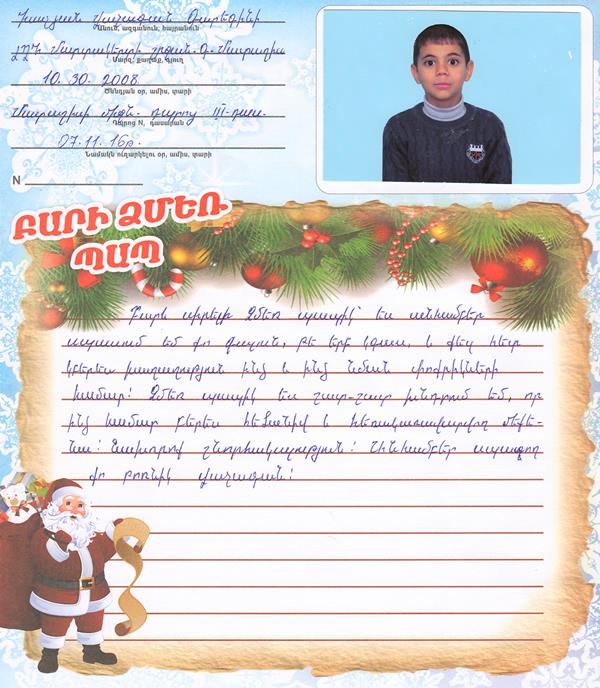 Խաչյան Վաչագան Գարեգինի
Անուն, ազգանուն, հայրանուն
ԼՂՀ Մարտակերտի շրջան գ. Մատաղիս
Մարզ, քաղաք, գյուղ
10. 30. 2008
Ծննդյան օր, ամիս, տարի
Մատաղիսի միջն. դպրոց III-դաս.
Դպրոց N, դասարան
07. 11. 16թ.
Նամակն ուղարկելու օր, ամիս, տարի
N
ԲԱՐԻ ՁՄԵՌ
ՊԱՊ
Բարև սիրելի Ձմեռ պապիկ՝ ես անհամբեր
սպասում եմ քո գալուն, թե երբ կգաս, և քեզ հետ
կբերես խաղաղություն ինձ և ինձ նման փոքրիկների
համար: Ձմեռ պապիկ ես շատ-շատ խնդրում եմ, որ
ինձ համար բերես հեծանիվ և հեռակառավարվող մեքե-
նա: Նախօրոք շնորհակալություն: Անհամբեր սպասող
քո թոռնիկ Վաչագան: